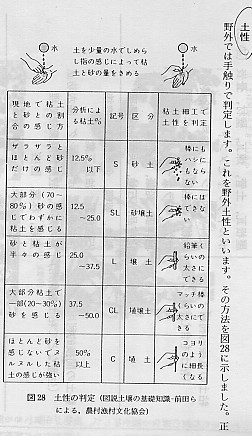 土性
野外では手触りで判定します。これを野外土性といいます。その方法を図28に示しました。正
水
土を少量の水でしめら
し指の感じによって粘
土と砂の量をきめる
水
現地で粘土
と砂との割
合の感じ方
分析によ
る粘土%
記号
区分
粘土細工で
土性を判定
ザラザラと
ほとんど砂
だけの感じ
12.5%
以下
S
砂土
棒にも
ハシに
もなら
ない
大部分(70~
80%)砂の感
じでわずかに
粘土を感じる
12.5
~25.0
SL
砂壌土
棒には
できな
い
砂と粘土が
半々の感じ
25.0
~37.5
L
壌土
鉛筆く
らいの
太さに
できる
大部分粘土で
一部(20~30%)
砂を感じる
37.5
~50.0
CL
埴壌土
マッチ棒
くらいの
太さにで
きる
ほとんど砂を
感じないでヌ
ルヌルした粘
土の感じが強い
50%
以上
C
埴土
コヨリ
のよう
に細長
くなる
図28 土性の判定(図説土壌の基礎知識-前田ら
による、農村漁村文化協会)